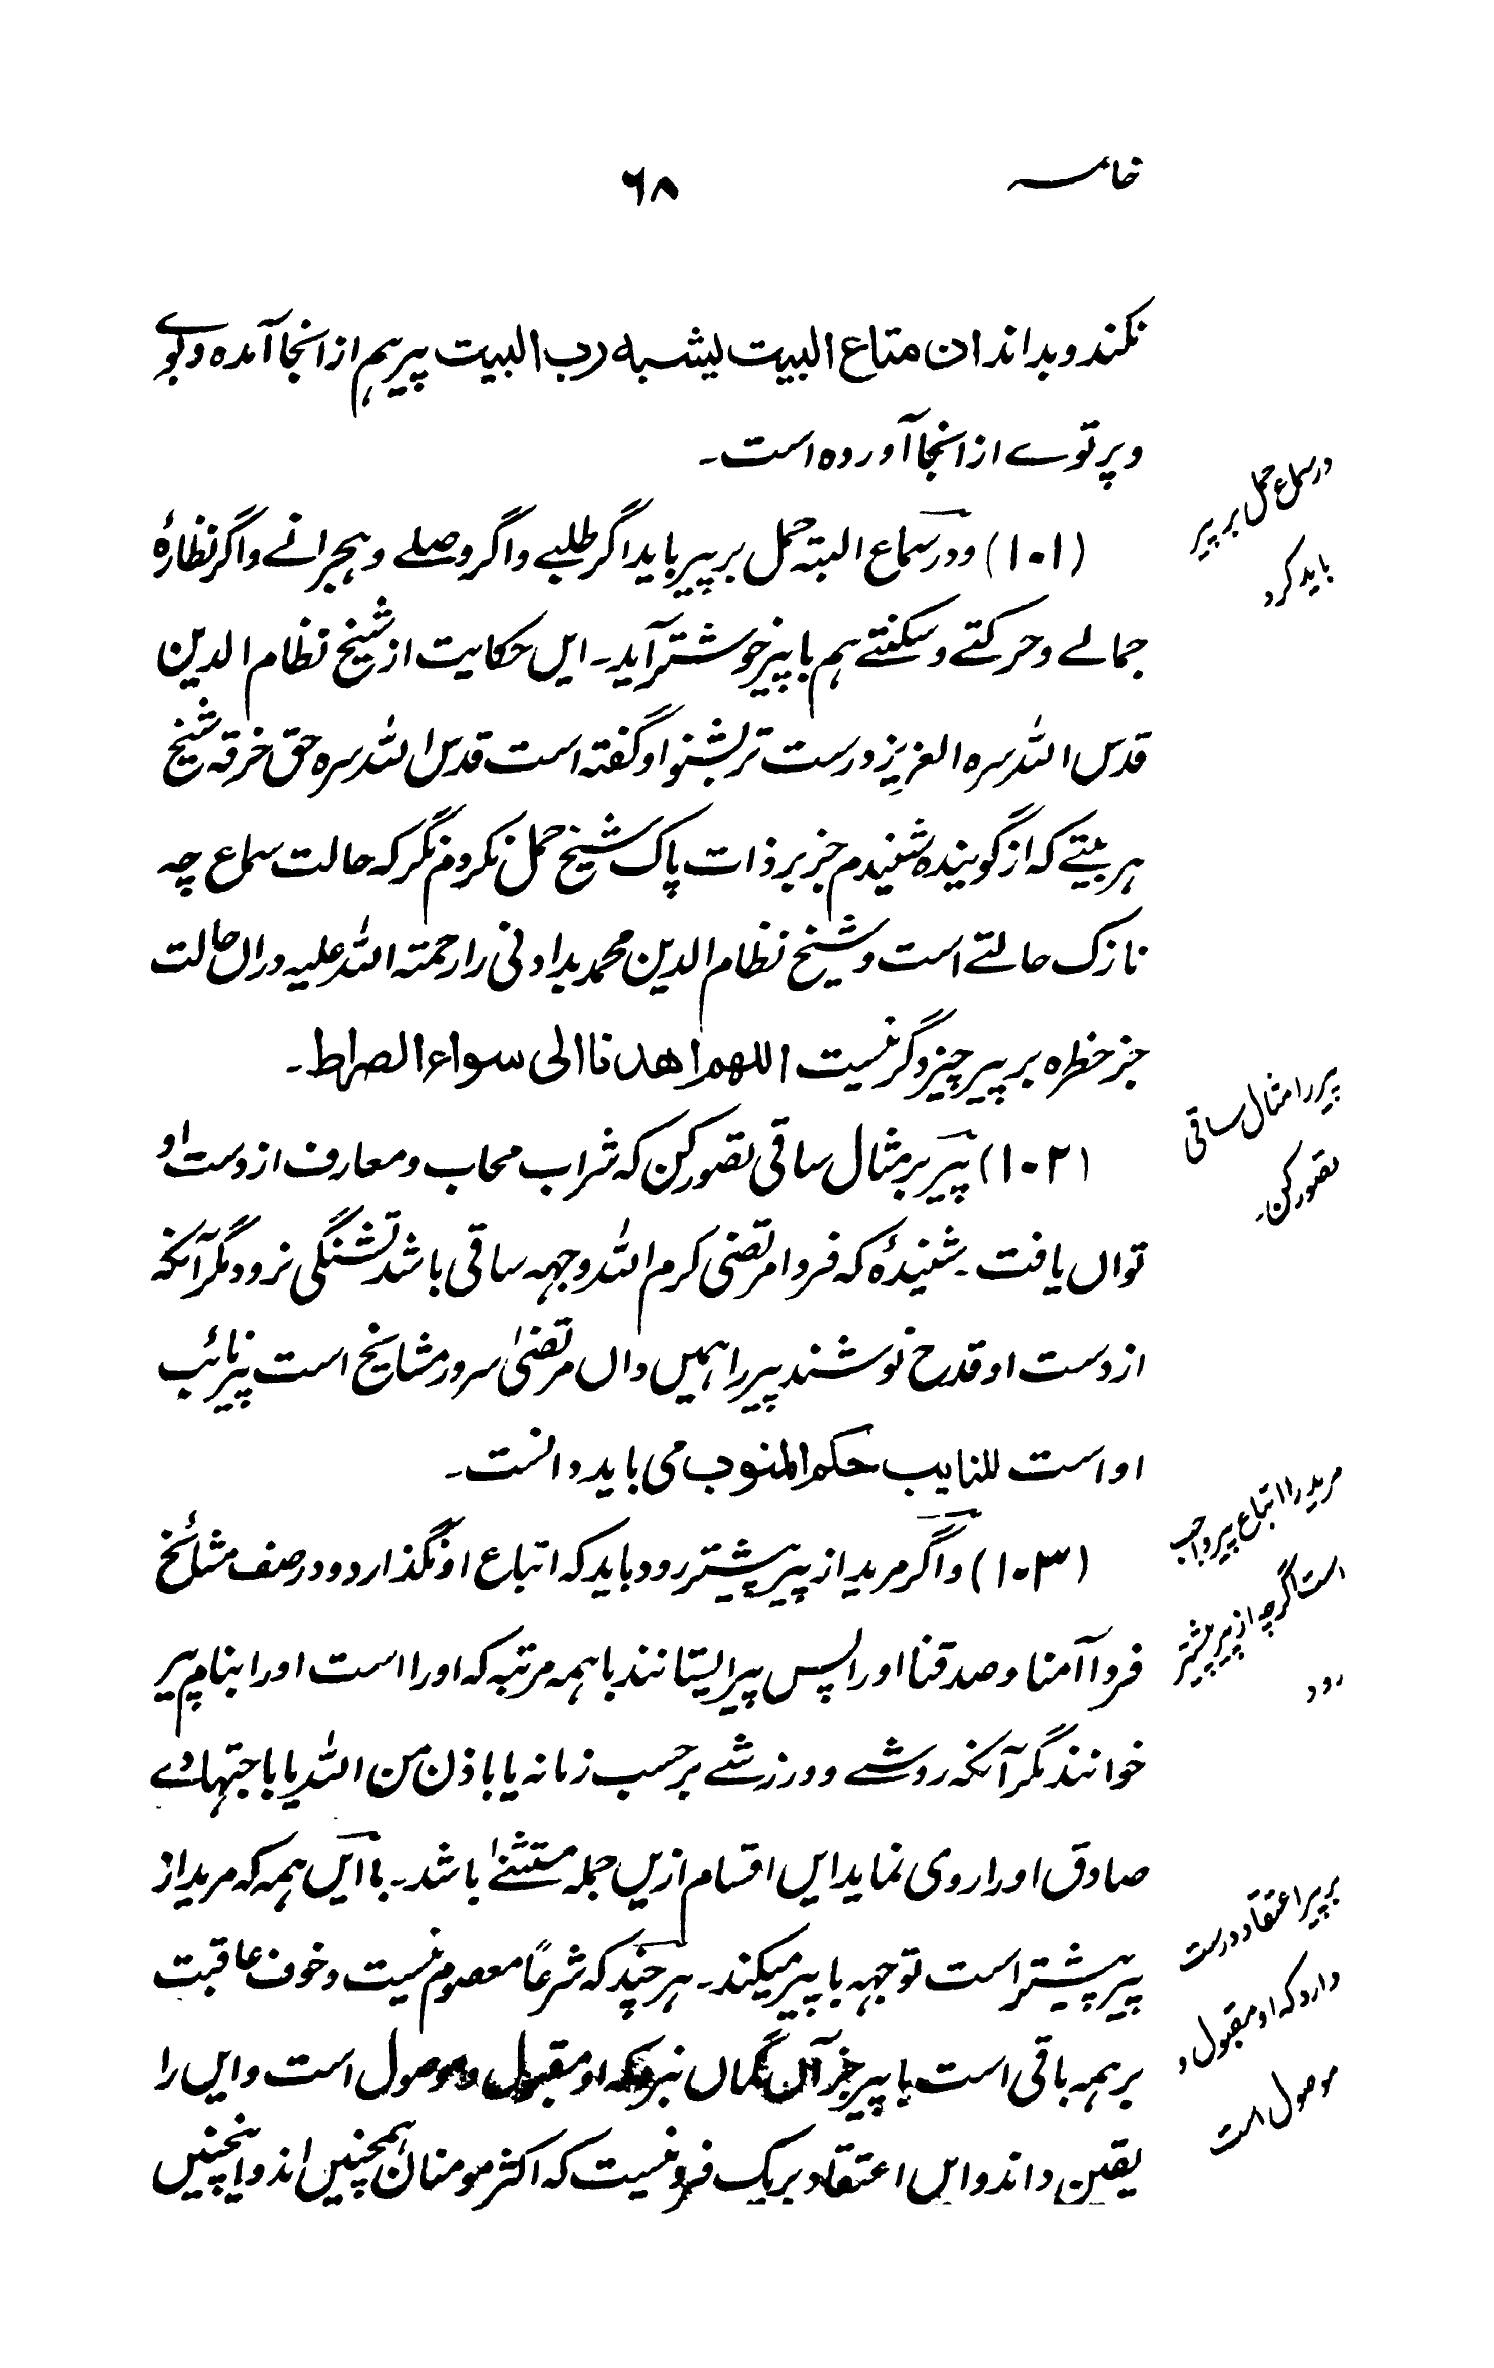 خامسہ
۶۸
نکند و بداند ان متاع البیت لیشبہ رب البیت پیر ہم از انجا آمدہ و بوے
و پرتوے از انجا آوردہ است۔
در سماع حمل بر پیر
باید کرد
(۱۰۱) و در سماع البتہ حمل بر پیر باید اگر طلبے و اگر وصلے و ہجرانے و اگر نظارۂ
جمالے و حرکتے و سکنتے ہم با پیر خوشتر آید۔ ایں حکایت از شیخ نظام الدین
قدس اللہ سرہ العزیز درست تر بشنو او گفتہ است قدس اللہ سرہ حق خرقہ شیخ
ہر بیتے کہ از گویندہ شنیدم جز بر ذات پاک شیخ حمل نکردم نگر کہ حالت سماع چہ
نازک حالتے است و شیخ نظام الدین محمد بداونی را رحمتہ اللہ علیہ دراں حالت
جز خطرہ بر پیر چیز دگر نیست اللهم اهدنا الی سواء الصراط۔
پیر را مثال ساقی
تصور کن۔
(۱۰۲) پیر بر مثال ساقی تصور کن کہ شراب محاب و معارف از دست او
تواں یافت۔ شنیدۂ کہ فردا مرتضی کرم اللہ وجہہ ساقی باشد تشنگی نرود مگر آنکہ
از دست او قدح نوشند پیر را ہمیں داں مرتضیٰ سرور مشایخ است پیر نائب
او است للنایب حکم المنوب می باید دانست۔
مرید را اتباع پیر واجب
است اگرچہ از پیر پیشتر
رود
(۱۰۳) و اگر مرید از پیر پیشتر رود باید کہ اتباع او نگذارد و در صف مشائخ
فردا آمنا و صدقنا او را پس پیر ایستانند با ہمہ مرتبہ کہ او را است او را بنام پیر
خوانند مگر آنکہ روشے و ورزشے بر حسب زمانہ یا باذن من اللہ یا باجتہادے
صادق او را روی نماید ایں اقسام ازیں جملہ مستثنےٰ باشد۔ با ایں ہمہ کہ مرید از
بر پیر اعتقاد درست
دارد کہ او مقبول و
موصول است
پیر پیشتر است توجہہ با پیر میکند۔ ہر چند کہ شرعاً معصوم نیست و خوف عاقبت
بر ہمہ باقی است با پیر جز آں گماں نبرد کہ او مقبول و موصول است و ایں را
یقین داند و ایں اعتقاد بر یک فرد نیست کہ اکثر مومنان ہمچنیں اند و اینچنیں